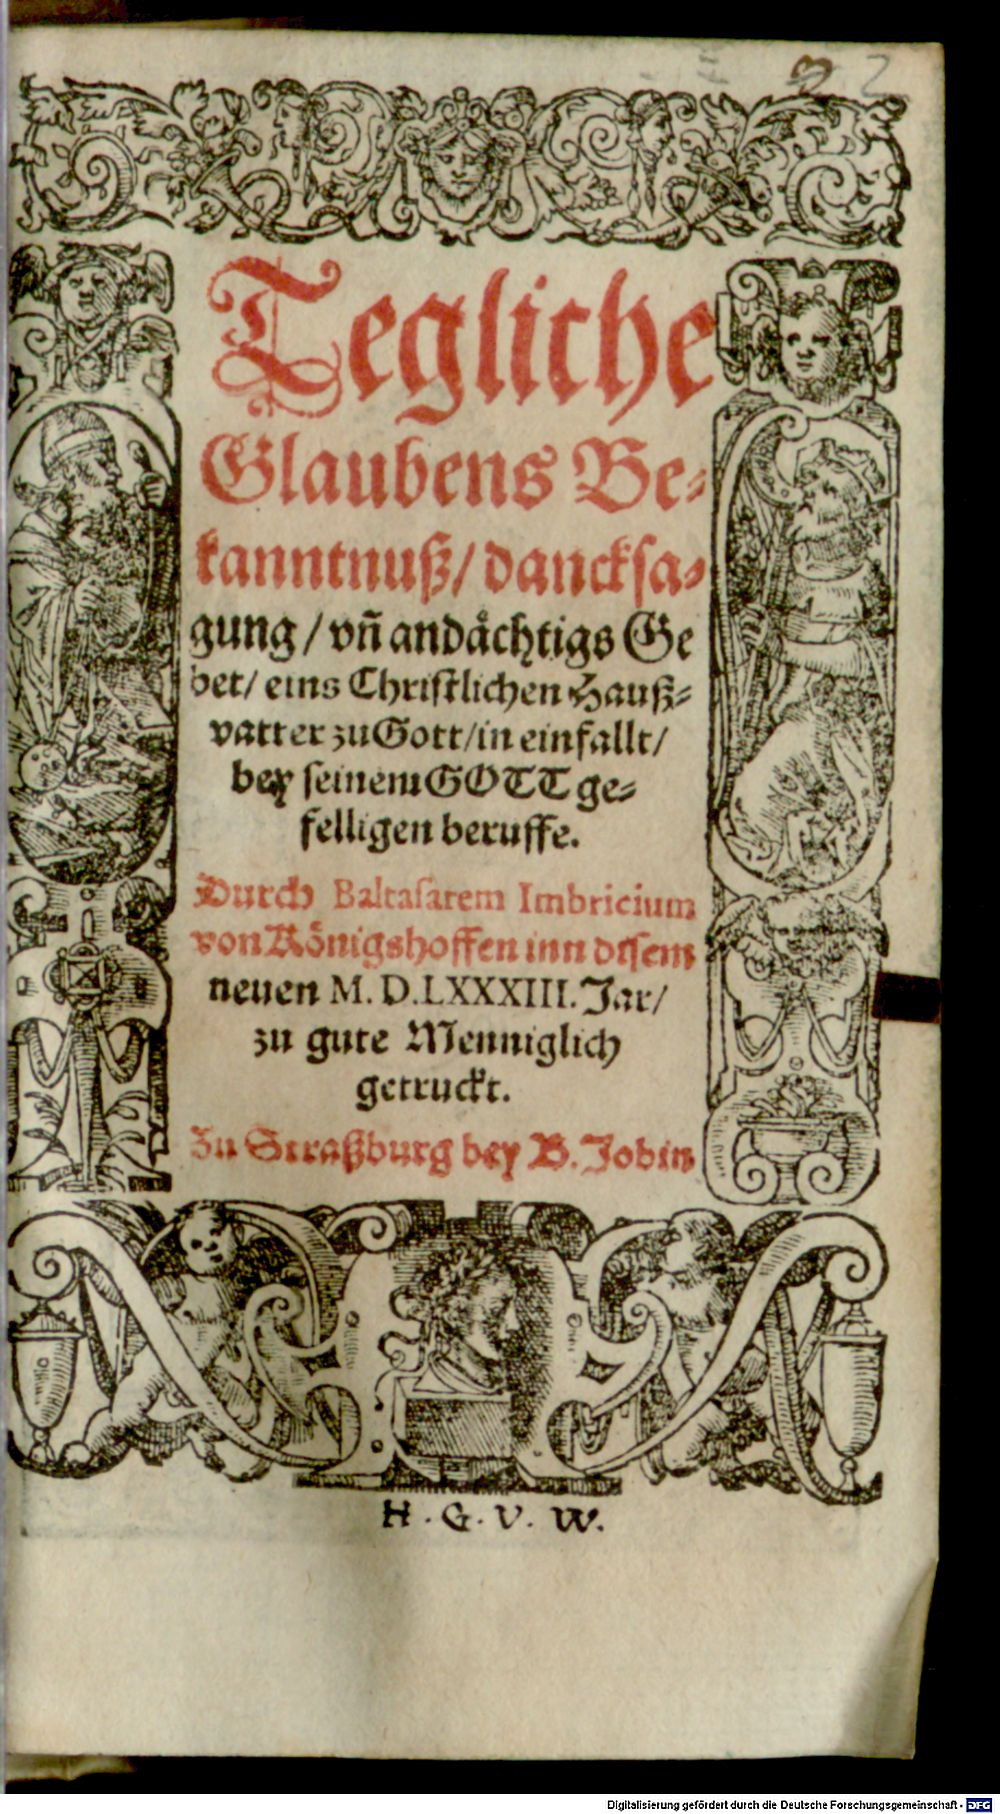 2
Tegliche
Glaubens Be-
kanntnuß/ dancksa-
gung/ vñ andåchtigs Ge
bet/ eins Christlichen Hauß-
vatter zu Gott/ in einfallt/
bey seinem GOTT ge-
felligen beruffe.
Durch Baltasarem Imbricium
von Königshoffen inn disem
neuen M. D. LXXXIII. Jar/
zu gute Menniglich
getruckt.
Zu Straßburg bey B. Jobin
H. G. V. W.
Digitalisierung gefördert durch die Deutsche Forschungsgemeinschaft - DFG